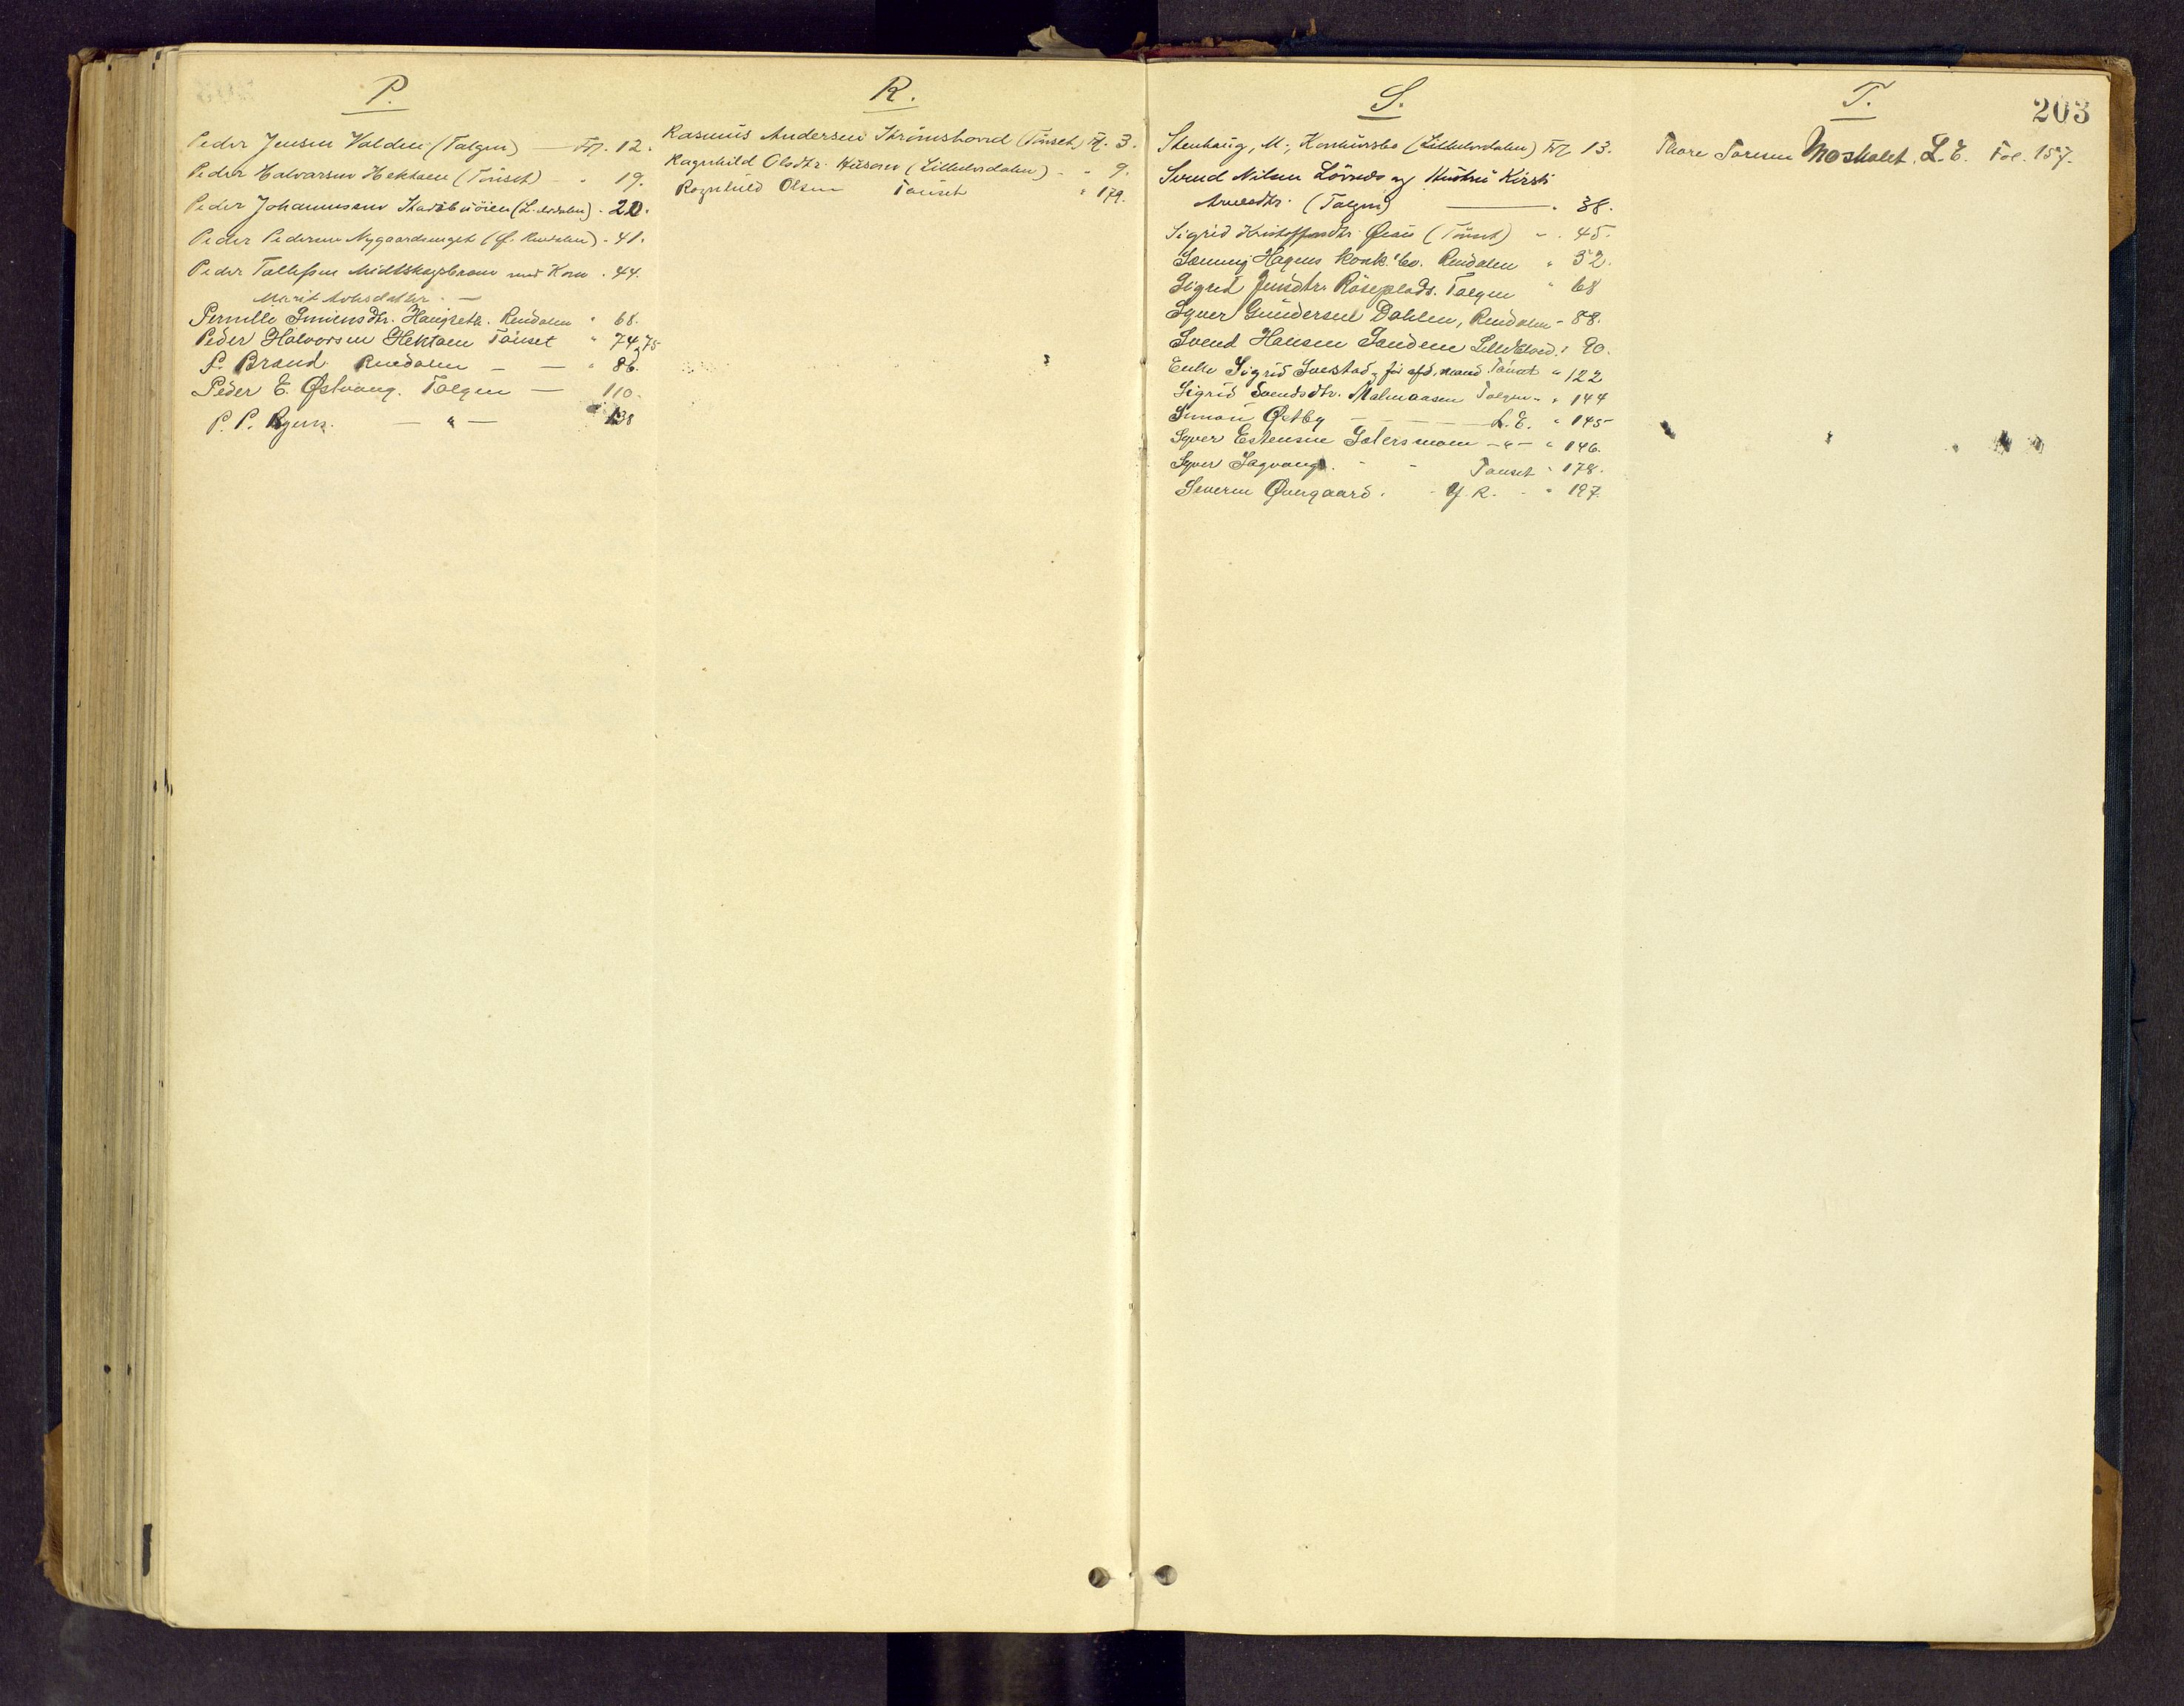 P.
Peder Jensen Valdeen (Tolgen) — Fol. 12.
Peder Halvarsen Hektoen (Tönset) - " 19.
Peder Johannesen Stadsbuöien (L. elvdalen) - 20.
Peder Pedersen Nygaardsenget (Ø. Rendalen) - 41.
Peder Tollefsen Midtskogsbraaten med Kone . 44.
Marit Arnesdatter. —
Pernille Simensdtr. Haugseth. Rendalen " 68.
Peder Halvorsen Hektoen Tönset " 74 & 75
P. Brand Rendalen — — " 86.
Peder E. Østvang. Tolgen — 110.
P. P. — " — " 138
R.
Rasmus Andersen Strömshoved (Tönset) Fol. 3.
Ragnhild Olsdtr. Husom (Lilleelvdalen) - " 9.
Ragnhild Olsen Tönset " 179.
S.
Stenhaug, M., Konkursbo (Lilleelvdalen) Fol 13.
Svend Nilsen Lövnes og Hustru Kirsti
Arnesdtr. (Tolgen) — " 38.
Sigrid Kristoffersdtr. Øian (Tönset) - " . 45.
Sæming Hagens Konk.'bo. Rendalen " 52.
Sigrid Jensdtr. Röseplads. Tolgen " 68
Syver Gundersen Dahlen, Rendalen - 88.
Svend Hansen Sandeen Lilleelvd. " 90.
Enke Sigrid Ivestad & før afd. mand Tönset " 122
Sigrid Svendsdtr. Malmaasen Tolgen - " 144
Simon Østby — — — L. E. " 145
Syver Estensen Galersmoen — " — " 146.
Syver Sagvang. - - Tönset " 178.
Severin Øvergaard. - Y. R. - " 197.
T.
203
Thore Toresen Moskolet. L. E. Fol. 157.